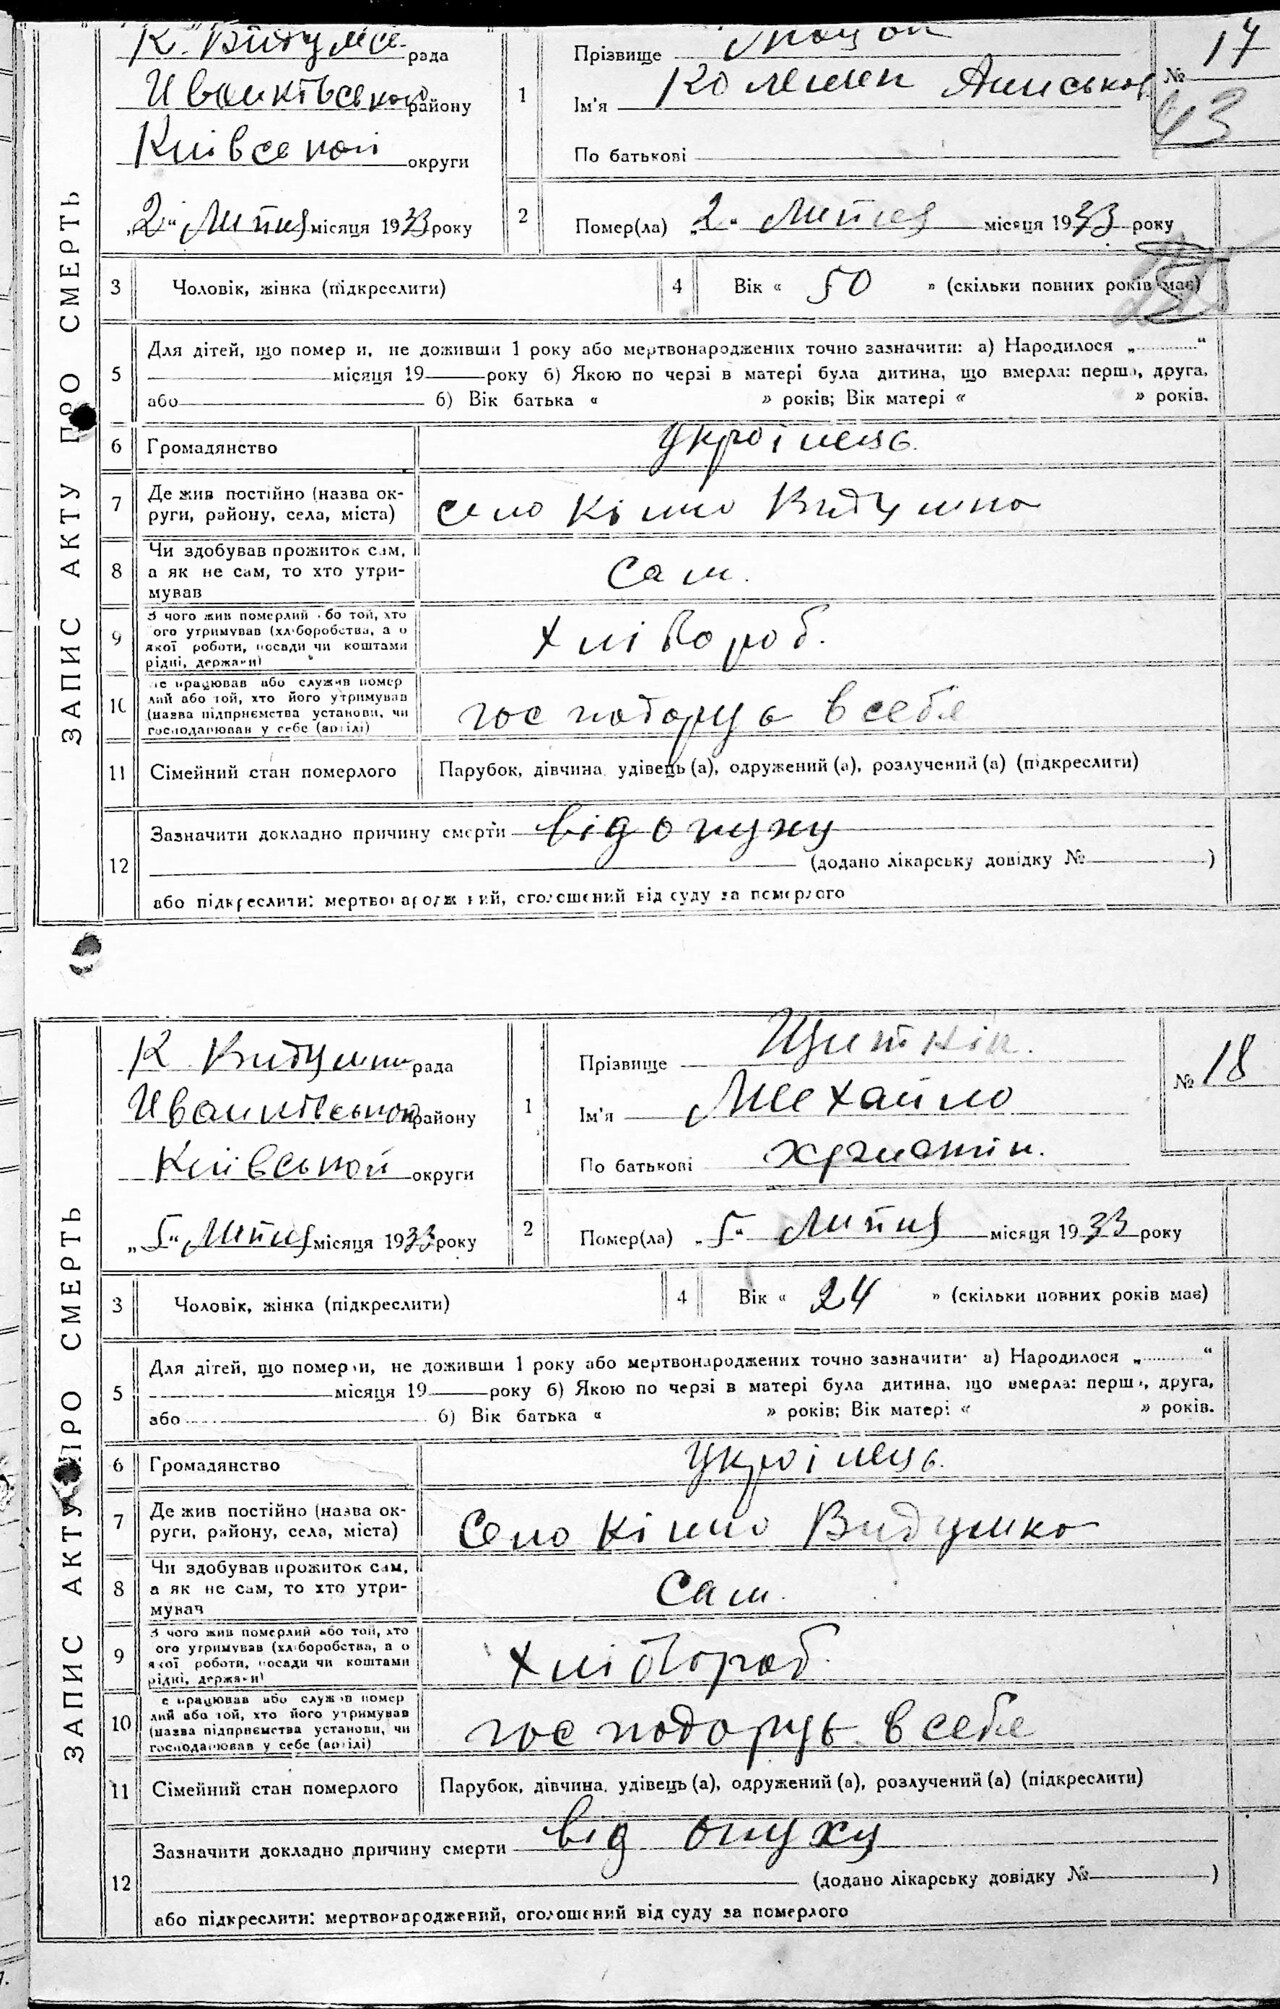 ЗАПИС АКТУ ПРО СМЕРТЬ
рада
району
Київської округи
"2" Липня місяця 1933 року
1
Прізвище
Ім'я
По батькові
№ 17
43
2
Помер(ла) "2" Липня місяця 1933 року
3 Чоловік, жінка (підкреслити)
4 Вік « 50 » (скільки повних років має)
5 Для дітей, що помер и, не доживши 1 року або мертвонароджених точно зазначити: а) Народилося „ “
місяця 19 року б) Якою по черзі в матері була дитина, що вмерла: перша, друга,
або б) Вік батька « » років; Вік матері « » років.
6 Громадянство українець.
7 Де жив постійно (назва ок-
руги, району, села, міста) село Кімно Видумка
8 Чи здобував прожиток сам,
а як не сам, то хто утри-
мував сам.
9 З чого жив померлий або той, хто
його утримував (хліборобства, а о
якої роботи, посади чи коштами
рідні, держави) хлібороб.
10 Де працював або служив помер
лий або той, хто його утримував
(назва підприємства установи, чи
господарював у себе (артілі) господорує в себе
11 Сімейний стан померлого Парубок, дівчина, удівець (а), одружений (а), розлучений (а) (підкреслити)
12 Зазначити докладно причину смерти від опуху
(додано лікарську довідку № )
або підкреслити: мертвонароджений, оголошений від суду за померлого
ЗАПИС АКТУ ПРО СМЕРТЬ
К Видумки рада
району
Київської округи
„5“ Липня місяця 1933 року
1
Прізвище
Ім'я Михайло
По батькові
№ 18
2
Помер(ла) „5“ Липня місяця 1933 року
3 Чоловік, жінка (підкреслити)
4 Вік « 24 » (скільки повних років має)
5 Для дітей, що помер и, не доживши 1 року або мертвонароджених точно зазначити: а) Народилося „ “
місяця 19 року б) Якою по черзі в матері була дитина, що вмерла: перша, друга,
або б) Вік батька « » років; Вік матері « » років.
6 Громадянство українець.
7 Де жив постійно (назва ок-
руги, району, села, міста) Село Кімно Видумка
8 Чи здобував прожиток сам,
а як не сам, то хто утри-
мувач сам.
9 З чого жив померлий або той, хто
його утримував (хліборобства, а о
якої роботи, посади чи коштами
рідні, держави) хлібороб.
10 Де працював або служив помер
лий або той, хто його утримував
(назва підприємства установи, чи
господарював у себе (артілі) господорує в себе
11 Сімейний стан померлого Парубок, дівчина, удівець (а), одружений (а), розлучений (а) (підкреслити)
12 Зазначити докладно причину смерти від опуху
(додано лікарську довідку № )
або підкреслити: мертвонароджений, оголошений від суду за померлого